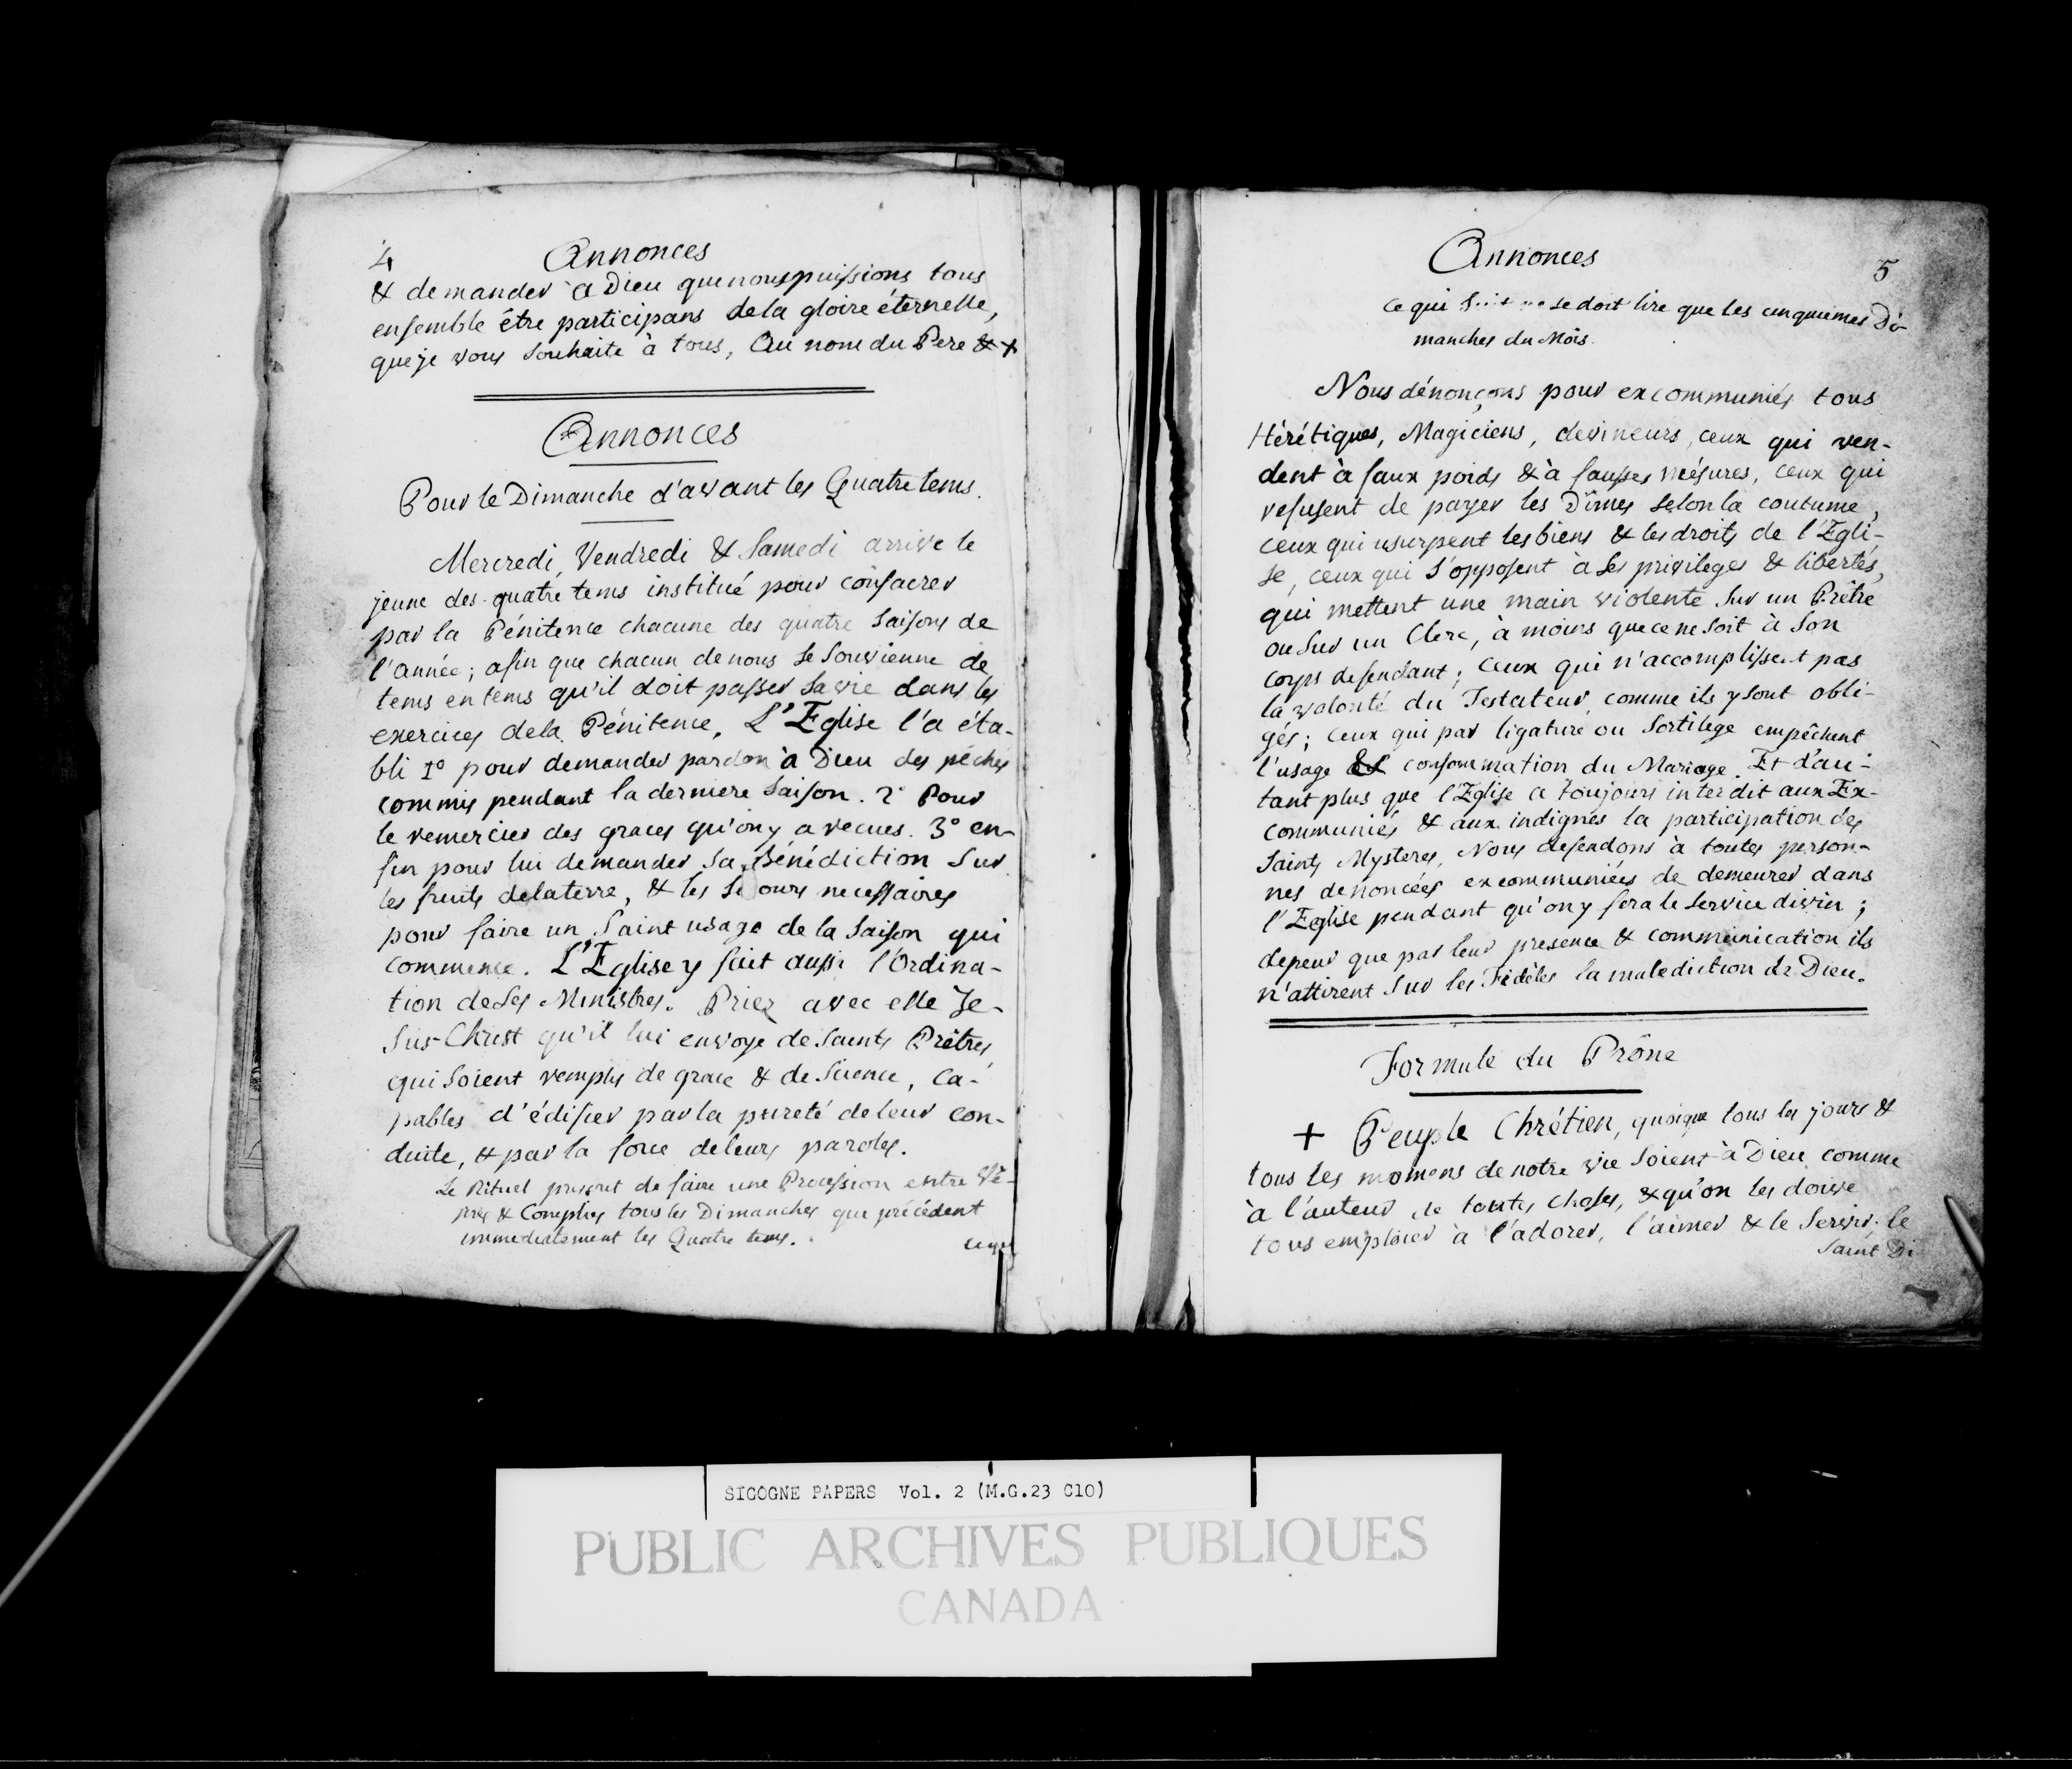 4
Annonces
& demander a Dieu que nous puissions tous
ensemble être participans de la gloire éternelle,
que je vous souhaite à tous, Au nom du Pere & +
Annonces
Pour le Dimanche d'avant les Quatre tems.
Mercredi, Vendredi & Samedi arrive le
jeune des quatre tems institué pour consacrer
par la Pénitence chacune des quatre Saisons de
l'année; afin que chacun de nous se souvienne de
tems en tems qu'il doit passer sa vie dans les
exercices de la Pénitence. L'Eglise l'a éta-
bli 1° pour demander pardon à Dieu des péchés
commis pendant la derniere Saison. 2° Pour
le remercier des graces qu'on y a recues. 3° en-
fin pour lui demander sa Bénédiction sur
les fruits de la terre, & les secours necessaires
pour faire un Saint usage de la Saison qui
commence. L'Eglise y fait aussi l'Ordina-
tion de ses Ministres. Priez avec elle Je-
sus-Christ qu'il lui envoye de Saints Prêtres
qui soient remplis de grace & de Sience, ca-
pables d'édifier par la pureté de leur con-
duite, & par la force de leurs paroles.
Le Rituel prescrit de faire une Procession entre Vê-
pres & Complies tous les Dimanches qui précédent
immediatement les Quatre tems.
ce qui
Annonces
5
Ce qui Suit ne se doit lire que les cinquiemes Di-
manches du Mois.
Nous dénonçons pour excommuniés tous
Hérétiques, Magiciens, devineurs, ceux qui ven-
dent à faux poids & à fausses mésures, ceux qui
refusent de payer les Dîmes selon la coutume,
ceux qui usurpent les biens & les droits de l'Egli-
se, ceux qui s'opposent à ses privileges & libertés,
qui mettent une main violente sur un Prêtre
ou sur un Clerc, à moins que ce ne soit à son
corps defendant; ceux qui n'accomplissent pas
la volonté du Testateur, comme ils y sont obli-
gés; ceux qui par ligature ou Sortilege empêchent
l'usage & consommation du Mariage. Et d'au-
tant plus que l'Eglise a toujours interdit aux Ex-
communiés & aux indignes la participation des
Saints Mysteres, Nous defendons à toutes person-
nes denoncées excommuniées de demeurer dans
l'Eglise pendant qu'on y fera le Service divin;
de peur que par leur presence & communication ils
n'attirent sur les Fidèles la malediction de Dieu.
Formule du Prône
+ Peuple Chrétien, quoique tous les jours &
tous les momens de notre vie soient à Dieu comme
à l'auteur de toutes choses, & qu'on les doive
tous emploier à l'adorer, l'aimer & le Servir; le
Saint Di
SICOGNE PAPERS Vol. 2 (M.G.23 C10)
PUBLIC ARCHIVES PUBLIQUES
CANADA